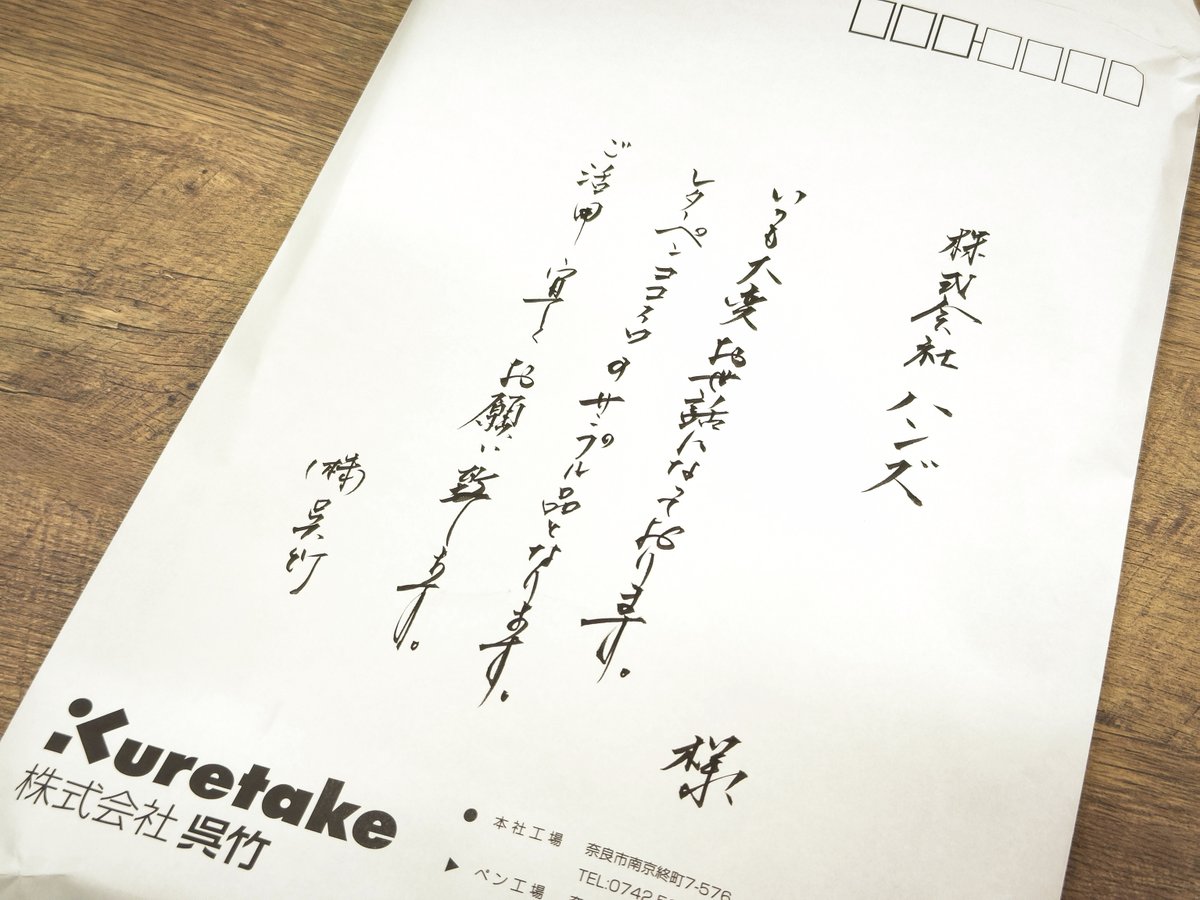 株式会社 ハンズ
様
いつも大変お世話になっております。
レターペンココイロのサンプル品となります。
ご活用 宜しくお願い致します。
(株)呉竹
Kuretake
株式会社 呉竹
● 本社工場 奈良市南京終町7-576
TEL:0742
▶ ペン工場